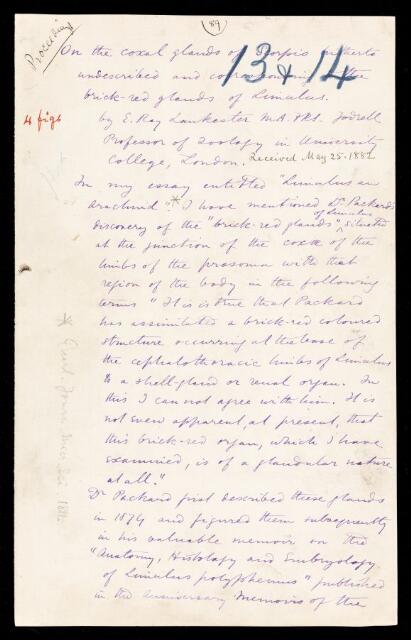 89
Proceedings
13 & 14
On the coxal glands of Scorpio hitherto
undescribed and corresponding to the
brick-red glands of Limulus.
4 figs
by E. Ray Lankester M.A. FRS. Jodrell
Professor of Zoology in University
College, London. Received May 25. 1882
In my essay entitled "Limulus an
Arachnid" * I have mentioned Dr. Packard's
discovery of the "brick-red glands" of Limulus, situated
at the junction of the coxae of the
limbs of the prosoma with that
region of the body in the following
terms "It is true that Packard
has assimilated a brick-red coloured
structure occurring at the base of
the cephalothoracic limbs of Limulus
to a shell-gland or renal organ. In
this I can not agree with him. It is
not even apparent, at present, that
this brick-red organ, which I have
examined, is of a glandular nature
at all."
* Quart. Journ. Micr. Sci. 1881
Dr Packard first described these glands
in 1874 and figured them subsequently
in his valuable memoir on the
"Anatomy, Histology and Embryology
of Limulus polyphemus" published
in the Anniversary Memoirs of the